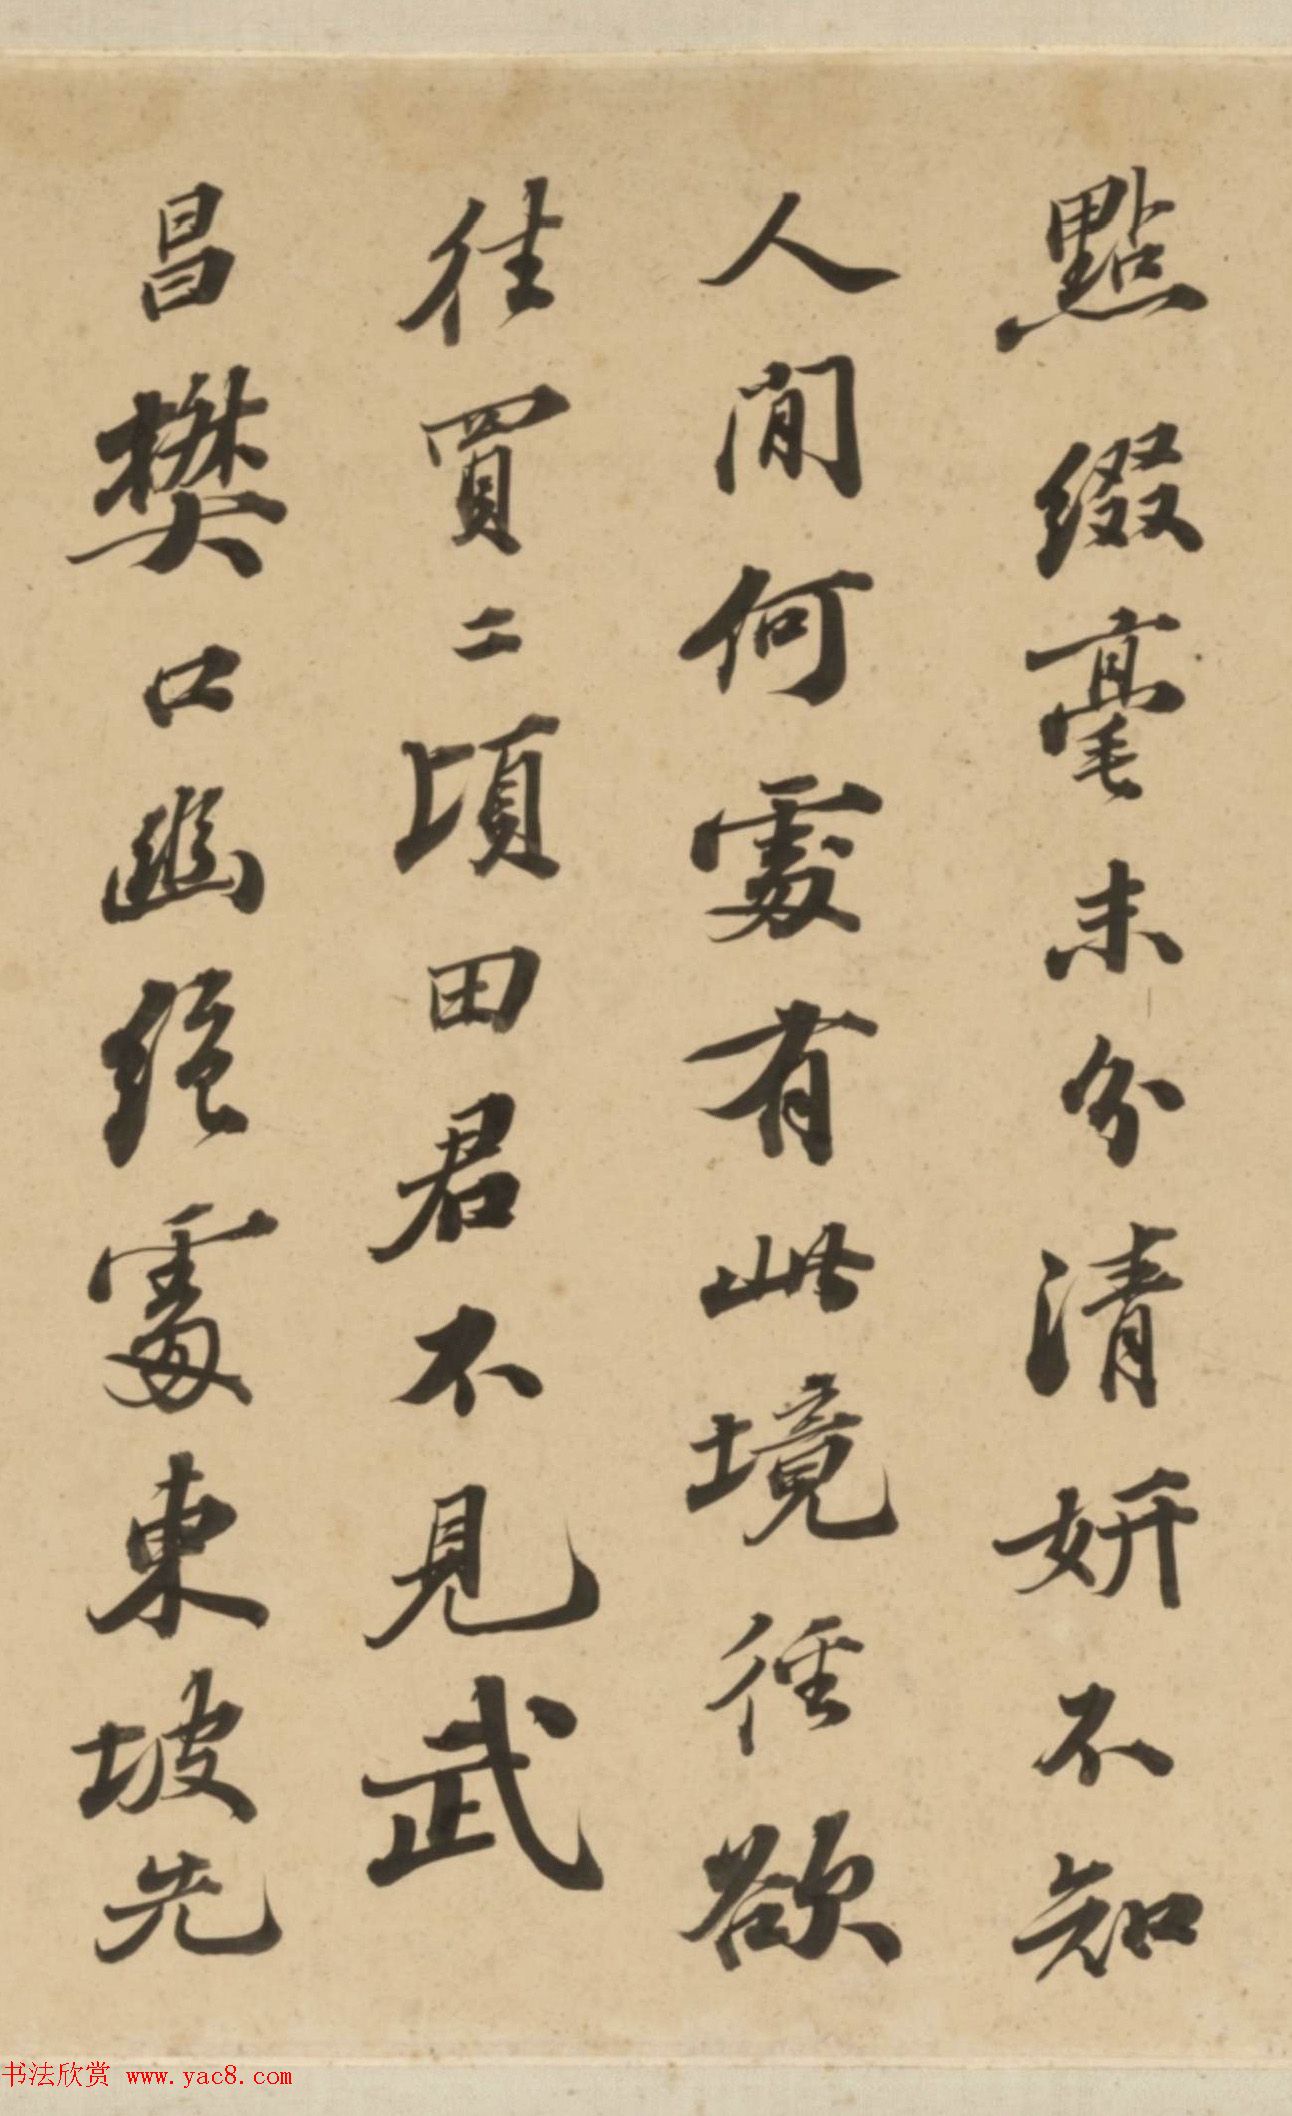 點綴毫末分清妍不知
人間何處有此境徑欲
往買二頃田君不見武
昌樊口幽絕處東坡先
书法欣赏 www.yac8.com